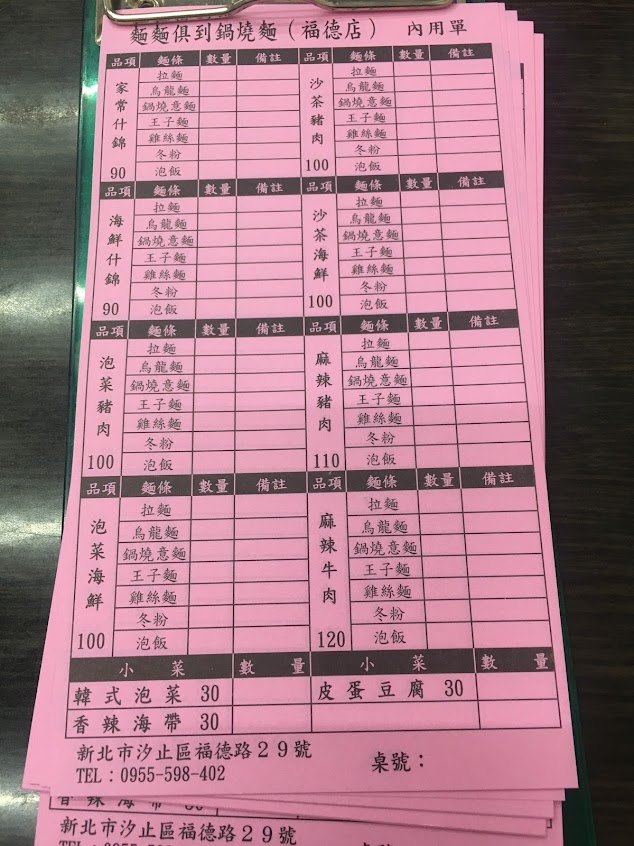 麵麵俱到鍋燒麵（福德店） 內用單
品項 麵條 數量 備註
家常什錦 90
拉麵
烏龍麵
鍋燒意麵
王子麵
雞絲麵
冬粉
泡飯
品項 麵條 數量 備註
沙茶豬肉 100
拉麵
烏龍麵
鍋燒意麵
王子麵
雞絲麵
冬粉
泡飯
品項 麵條 數量 備註
海鮮什錦 90
拉麵
烏龍麵
鍋燒意麵
王子麵
雞絲麵
冬粉
泡飯
品項 麵條 數量 備註
沙茶海鮮 100
拉麵
烏龍麵
鍋燒意麵
王子麵
雞絲麵
冬粉
泡飯
品項 麵條 數量 備註
泡菜豬肉 100
拉麵
烏龍麵
鍋燒意麵
王子麵
雞絲麵
冬粉
泡飯
品項 麵條 數量 備註
麻辣豬肉 110
拉麵
烏龍麵
鍋燒意麵
王子麵
雞絲麵
冬粉
泡飯
品項 麵條 數量 備註
泡菜海鮮 100
拉麵
烏龍麵
鍋燒意麵
王子麵
雞絲麵
冬粉
泡飯
品項 麵條 數量 備註
麻辣牛肉 120
拉麵
烏龍麵
鍋燒意麵
王子麵
雞絲麵
冬粉
泡飯
小菜 數量 小菜 數量
韓式泡菜 30 皮蛋豆腐 30
香辣海帶 30
新北市汐止區福德路２９號
TEL：0955-598-402 桌號：
香辣海帶 30
新北市汐止區福德路２９號